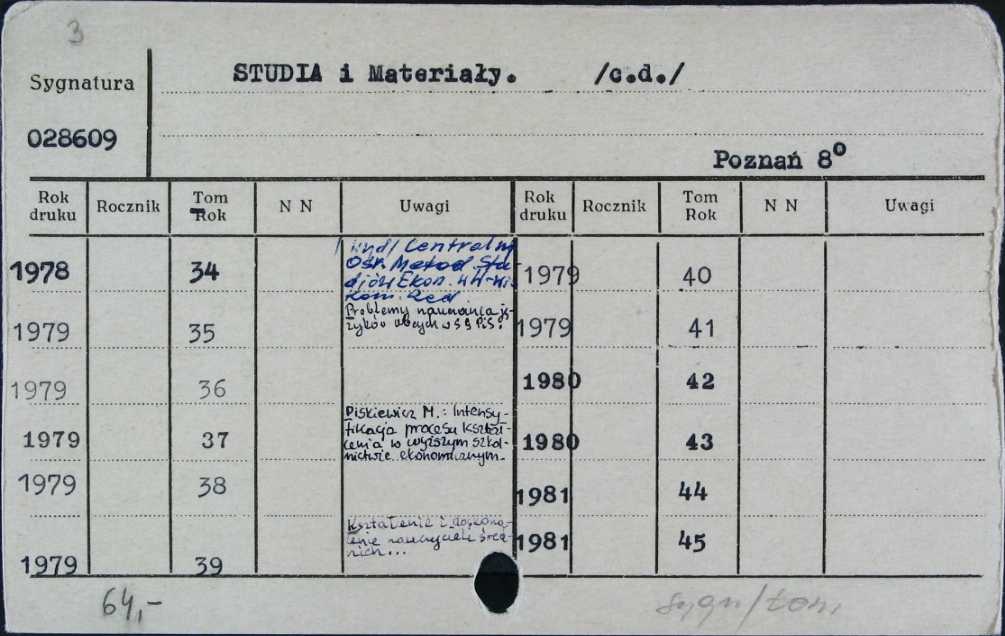 3
STUDIA i Materiały. /c.d./
Sygnatura
028609
Poznań 8°
Rok druku Rocznik Tom Rok N N Uwagi Rok druku Rocznik Tom Rok N N Uwagi
1978 34
Centraln
Ośr. Metod. Stu
djów Ekon.
Kom. Red
1979 40
1979 35
Problemy nauczania ję-
zyków obcych w SGPiS.
1979 41
1979 36
1980 42
1979 37
Piskiewicz M.: Intensy-
fikacja procesu kształ-
cenia w wyższym szkol-
nictwie ekonomicznym.
1980 43
1979 38
1981 44
1979 39
Kształcenie i doskona-
lenie nauczycieli
1981 45
64,-
sygn/tom.